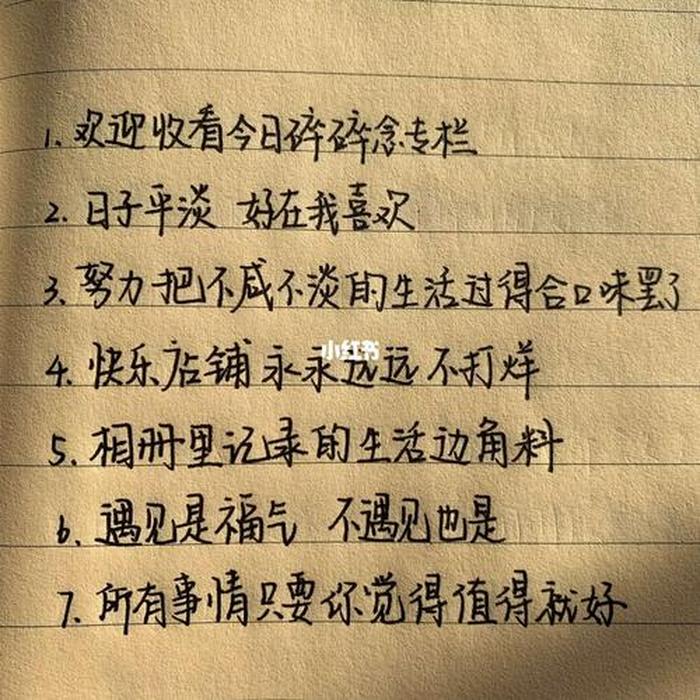 1. 欢迎收看今日碎碎念专栏
2. 日子平淡 好在我喜欢
3. 努力把不咸不淡的生活过得合口味罢了
4. 快乐店铺永永远远不打烊
小红书
5. 相册里记录的生活边角料
6. 遇见是福气 不遇见也是
7. 所有事情只要你觉得值得就好